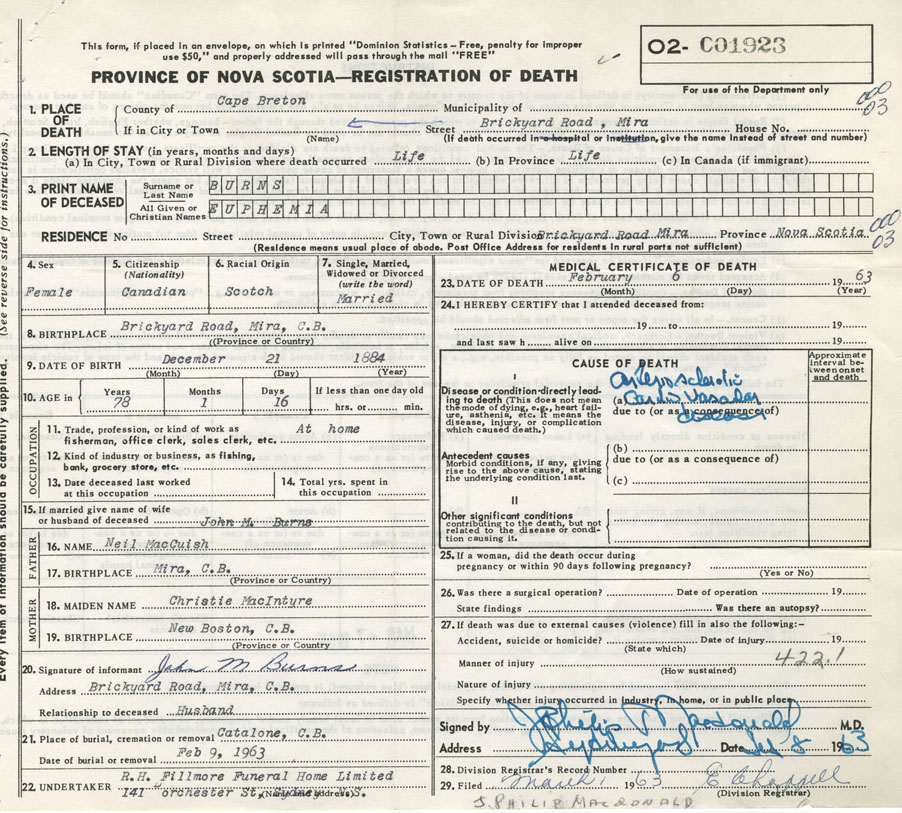 This form, if placed in an envelope, on which is printed "Dominion Statistics – Free, penalty for improper
use $50," and properly addressed will pass through the mail "FREE"
O2- C01923
PROVINCE OF NOVA SCOTIA—REGISTRATION OF DEATH
For use of the Department only
1. PLACE OF DEATH
County of Cape Breton Municipality of
000
03
If in City or Town (Name) Street Brickyard Road, Mira House No.
(If death occurred in a hospital or institution, give the name instead of street and number)
2. LENGTH OF STAY (in years, months and days)
(a) In City, Town or Rural Division where death occurred Life (b) In Province Life (c) In Canada (if immigrant)
3. PRINT NAME OF DECEASED
Surname or Last Name BURNS
All Given or Christian Names EUPHEMIA
RESIDENCE No Street City, Town or Rural Division Brickyard Road Mira Province Nova Scotia
000
03
(Residence means usual place of abode. Post Office Address for residents in rural parts not sufficient)
4. Sex
Female
5. Citizenship
(Nationality)
Canadian
6. Racial Origin
Scotch
7. Single, Married,
Widowed or Divorced
(write the word)
Married
8. BIRTHPLACE Brickyard Road, Mira, C.B.
(Province or Country)
9. DATE OF BIRTH December 21 1884
(Month) (Day) (Year)
10. AGE in
Years 78
Months 1
Days 16
If less than one day old
hrs. or min.
OCCUPATION
11. Trade, profession, or kind of work as
fisherman, office clerk, sales clerk, etc. At home
12. Kind of industry or business, as fishing,
bank, grocery store, etc.
13. Date deceased last worked
at this occupation
14. Total yrs. spent in
this occupation
15. If married give name of wife
or husband of deceased John M. Burns
FATHER
16. NAME Neil MacCuish
17. BIRTHPLACE Mira, C.B.
(Province or Country)
MOTHER
18. MAIDEN NAME Christie MacIntyre
19. BIRTHPLACE New Boston, C.B.
(Province or Country)
20. Signature of informant John M Burns
Address Brickyard Road, Mira, C.B.
Relationship to deceased Husband
21. Place of burial, cremation or removal Catalone, C.B.
Date of burial or removal Feb 9, 1963
22. UNDERTAKER R.H. Fillmore Funeral Home Limited
141 orchester St, Sydney N.S.
(Name and address)
MEDICAL CERTIFICATE OF DEATH
23. DATE OF DEATH February 6 1963
(Month) (Day) (Year)
24. I HEREBY CERTIFY that I attended deceased from:
19 to 19
and last saw h alive on 19
CAUSE OF DEATH
Approximate
interval be-
tween onset
and death
I
Disease or condition directly lead-
ing to death (This does not mean
the mode of dying, e.g., heart fail-
ure, asthenia, etc. It means the
disease, injury, or complication
which caused death.)
Arteriosclerotic
(a) Cardio Vascular
due to (or as a consequence of)
disease
Antecedent causes
Morbid conditions, if any, giving
rise to the above cause, stating
the underlying condition last.
(b)
due to (or as a consequence of)
(c)
II
Other significant conditions
contributing to the death, but not
related to the disease or condi-
tion causing it.
25. If a woman, did the death occur during
pregnancy or within 90 days following pregnancy?
(Yes or No)
26. Was there a surgical operation? Date of operation 19
State findings Was there an autopsy?
27. If death was due to external causes (violence) fill in also the following:–
Accident, suicide or homicide? Date of injury 19
(State which)
Manner of injury 422.1
(How sustained)
Nature of injury
Specify whether injury occurred in industry, in home, or in public place
Signed by J Philip Macdonald M.D.
Address Date 8 1963
28. Division Registrar's Record Number
29. Filed March 1 1963 E Chappell
(Division Registrar)
J. PHILIP MACDONALD
(See reverse side for instructions.)
Every item of information should be carefully supplied.